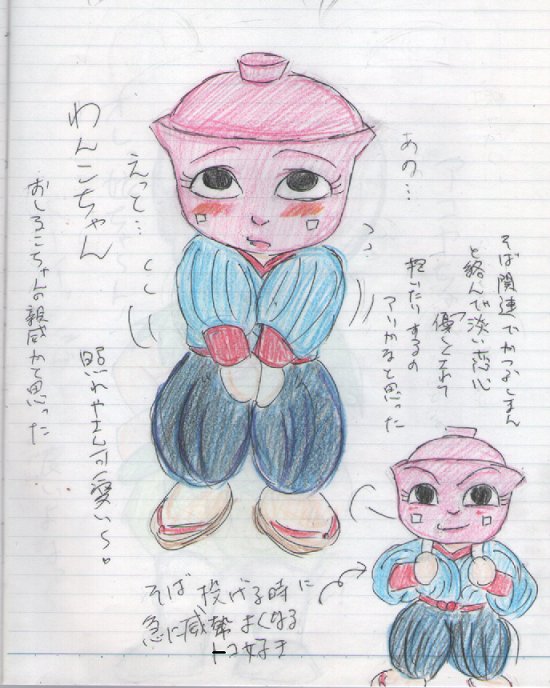 あの…
えっと…
わんこちゃん
おしるこちゃんの親戚かと思った
照れやさん可愛い〜。
そば関連でかつぶしまん
と絡んで淡い恋心
「優しくされて
抱いたりするの
アリかなと思った
そば投げる時に
急に威勢よくなる
トコ好き